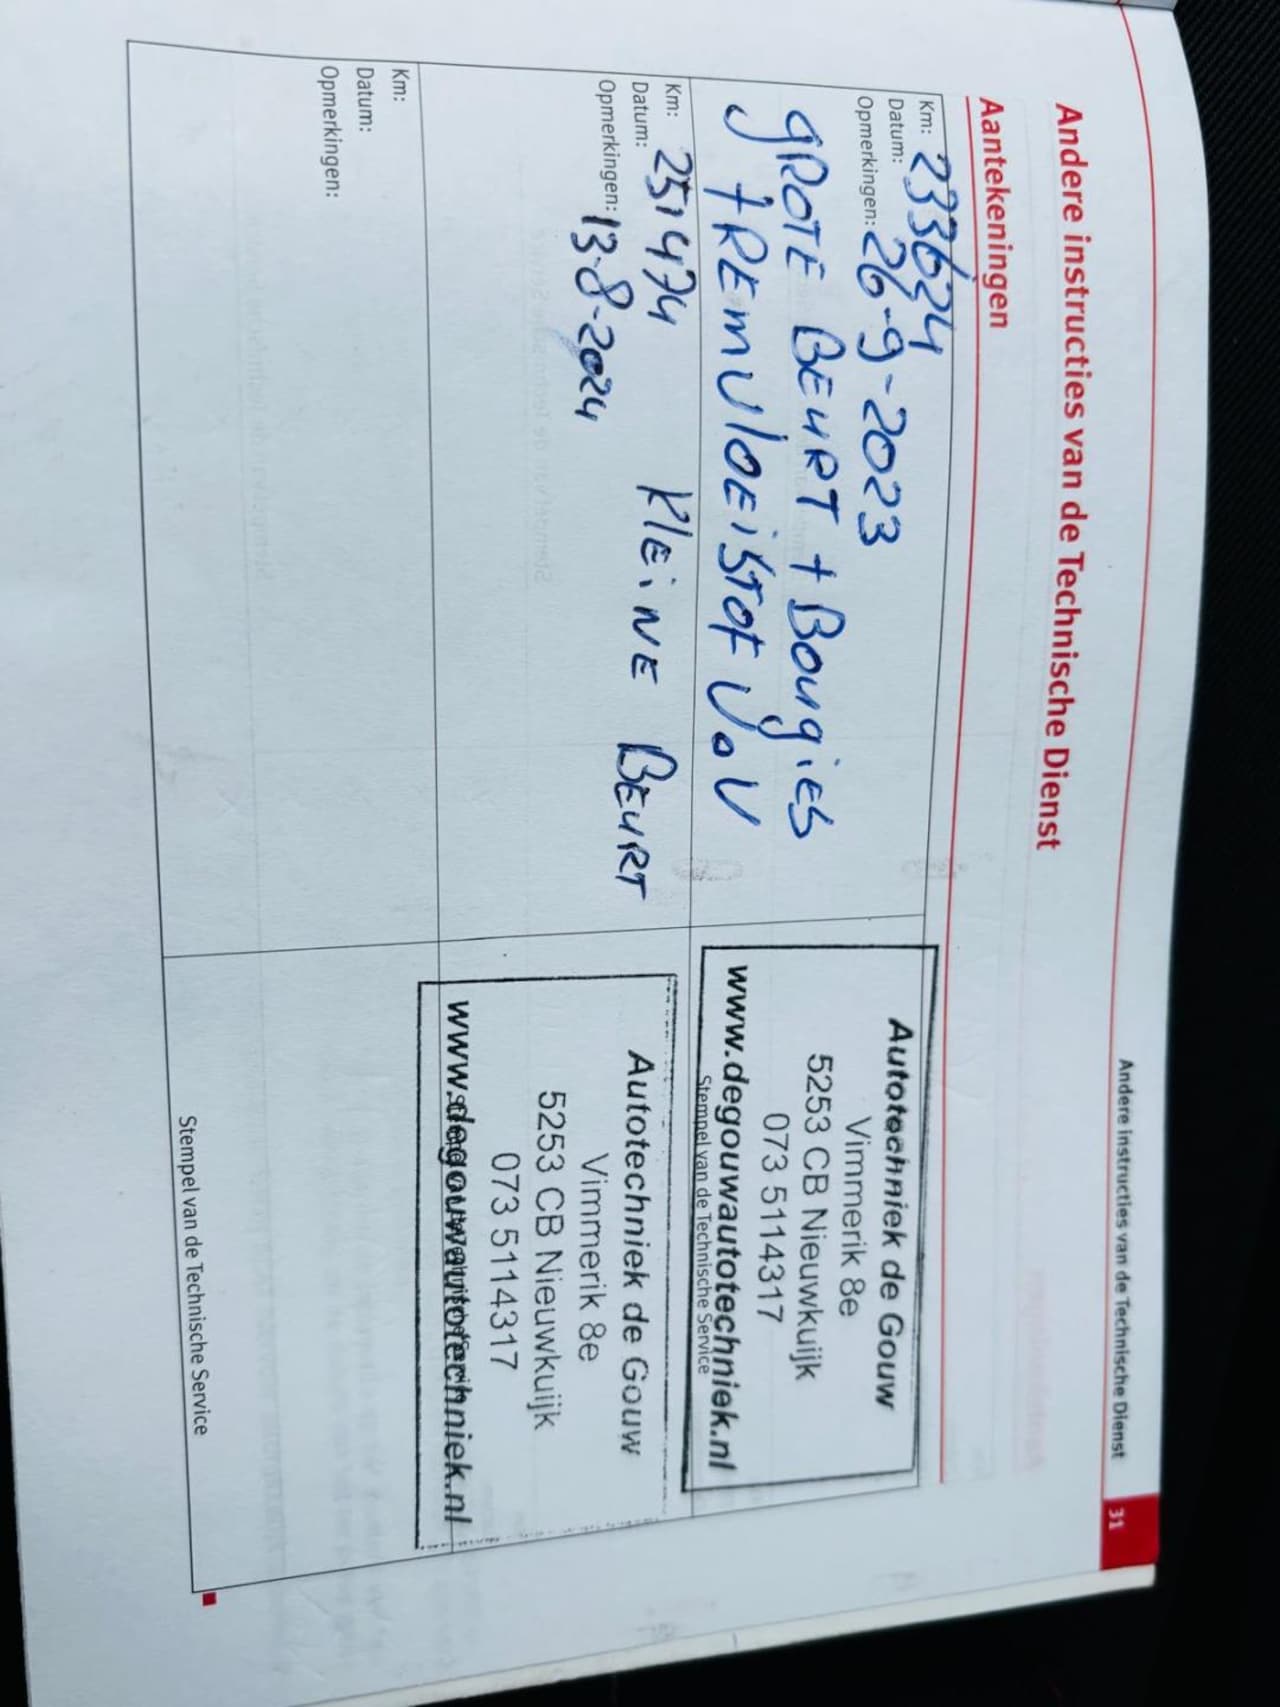 Andere instructies van de Technische Dienst
31
Andere instructies van de Technische Dienst
Aantekeningen
Km: 233624
Datum:
Opmerkingen: 26-9-2023
GROTE BEURT + BOUGIES
REMVLOEISTOF V.V
Autotechniek de Gouw
Vimmerik 8e
5253 CB Nieuwkuijk
073 5114317
www.degouwautotechniek.nl
Stempel van de Technische Service
Km: 251474
Datum:
Opmerkingen: 13-8-2024
KLEINE BEURT
Autotechniek de Gouw
Vimmerik 8e
5253 CB Nieuwkuijk
073 5114317
www.degouwautotechniek.nl
Km:
Datum:
Opmerkingen:
Stempel van de Technische Service